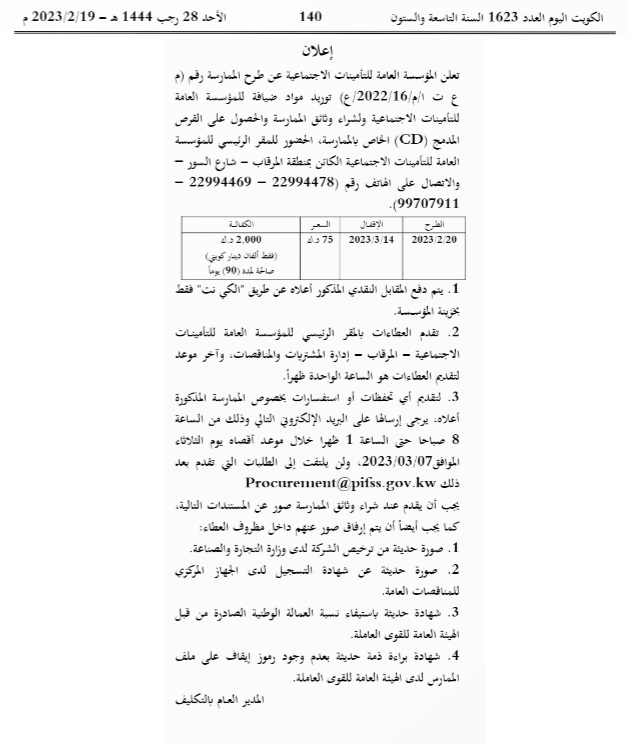 الكويت اليوم العدد 1623 السنة التاسعة والستون
140
الأحد 28 رجب 1444 هـ – 2023/2/19 م
إعلان
تعلن المؤسسة العامة للتأمينات الاجتماعية عن طرح الممارسة رقم (م
ع ت ا/م/2022/16/ع) توريد مواد ضيافة للمؤسسة العامة
للتأمينات الاجتماعية ولشراء وثائق الممارسة والحصول على القرص
المدمج (CD) الخاص بالممارسة، الحضور للمقر الرئيسي للمؤسسة
العامة للتأمينات الاجتماعية الكائن بمنطقة المرقاب – شارع السور –
والاتصال على الهاتف رقم (22994478 – 22994469 –
99707911).
الطرح الإقفال السعر الكفالة
2023/2/20 2023/3/14 75 د.ك 2,000 د.ك
(فقط ألفان دينار كويتي)
صالحة لمدة (90) يوماً
1. يتم دفع المقابل النقدي المذكور أعلاه عن طريق "الكي نت" فقط
بخزينة المؤسسة.
2. تقدم العطاءات بالمقر الرئيسي للمؤسسة العامة للتأمينات
الاجتماعية – المرقاب – إدارة المشتريات والمناقصات، وآخر موعد
لتقديم العطاءات هو الساعة الواحدة ظهراً.
3. لتقديم أي تحفظات أو استفسارات بخصوص الممارسة المذكورة
أعلاه، يرجى إرسالها على البريد الإلكتروني التالي وذلك من الساعة
8 صباحا حتى الساعة 1 ظهرا خلال موعد أقصاه يوم الثلاثاء
الموافق2023/03/07، ولن يلتفت إلى الطلبات التي تقدم بعد
ذلك Procurement@pifss.gov.kw
يجب أن يقدم عند شراء وثائق الممارسة صور عن المستندات التالية،
كما يجب أيضاً أن يتم إرفاق صور عنهم داخل مظروف العطاء:
1. صورة حديثة من ترخيص الشركة لدى وزارة التجارة والصناعة.
2. صورة حديثة عن شهادة التسجيل لدى الجهاز المركزي
للمناقصات العامة.
3. شهادة حديثة باستيفاء نسبة العمالة الوطنية الصادرة من قبل
الهيئة العامة للقوى العاملة.
4. شهادة براءة ذمة حديثة بعدم وجود رموز إيقاف على ملف
الممارس لدى الهيئة العامة للقوى العاملة.
المدير العام بالتكليف